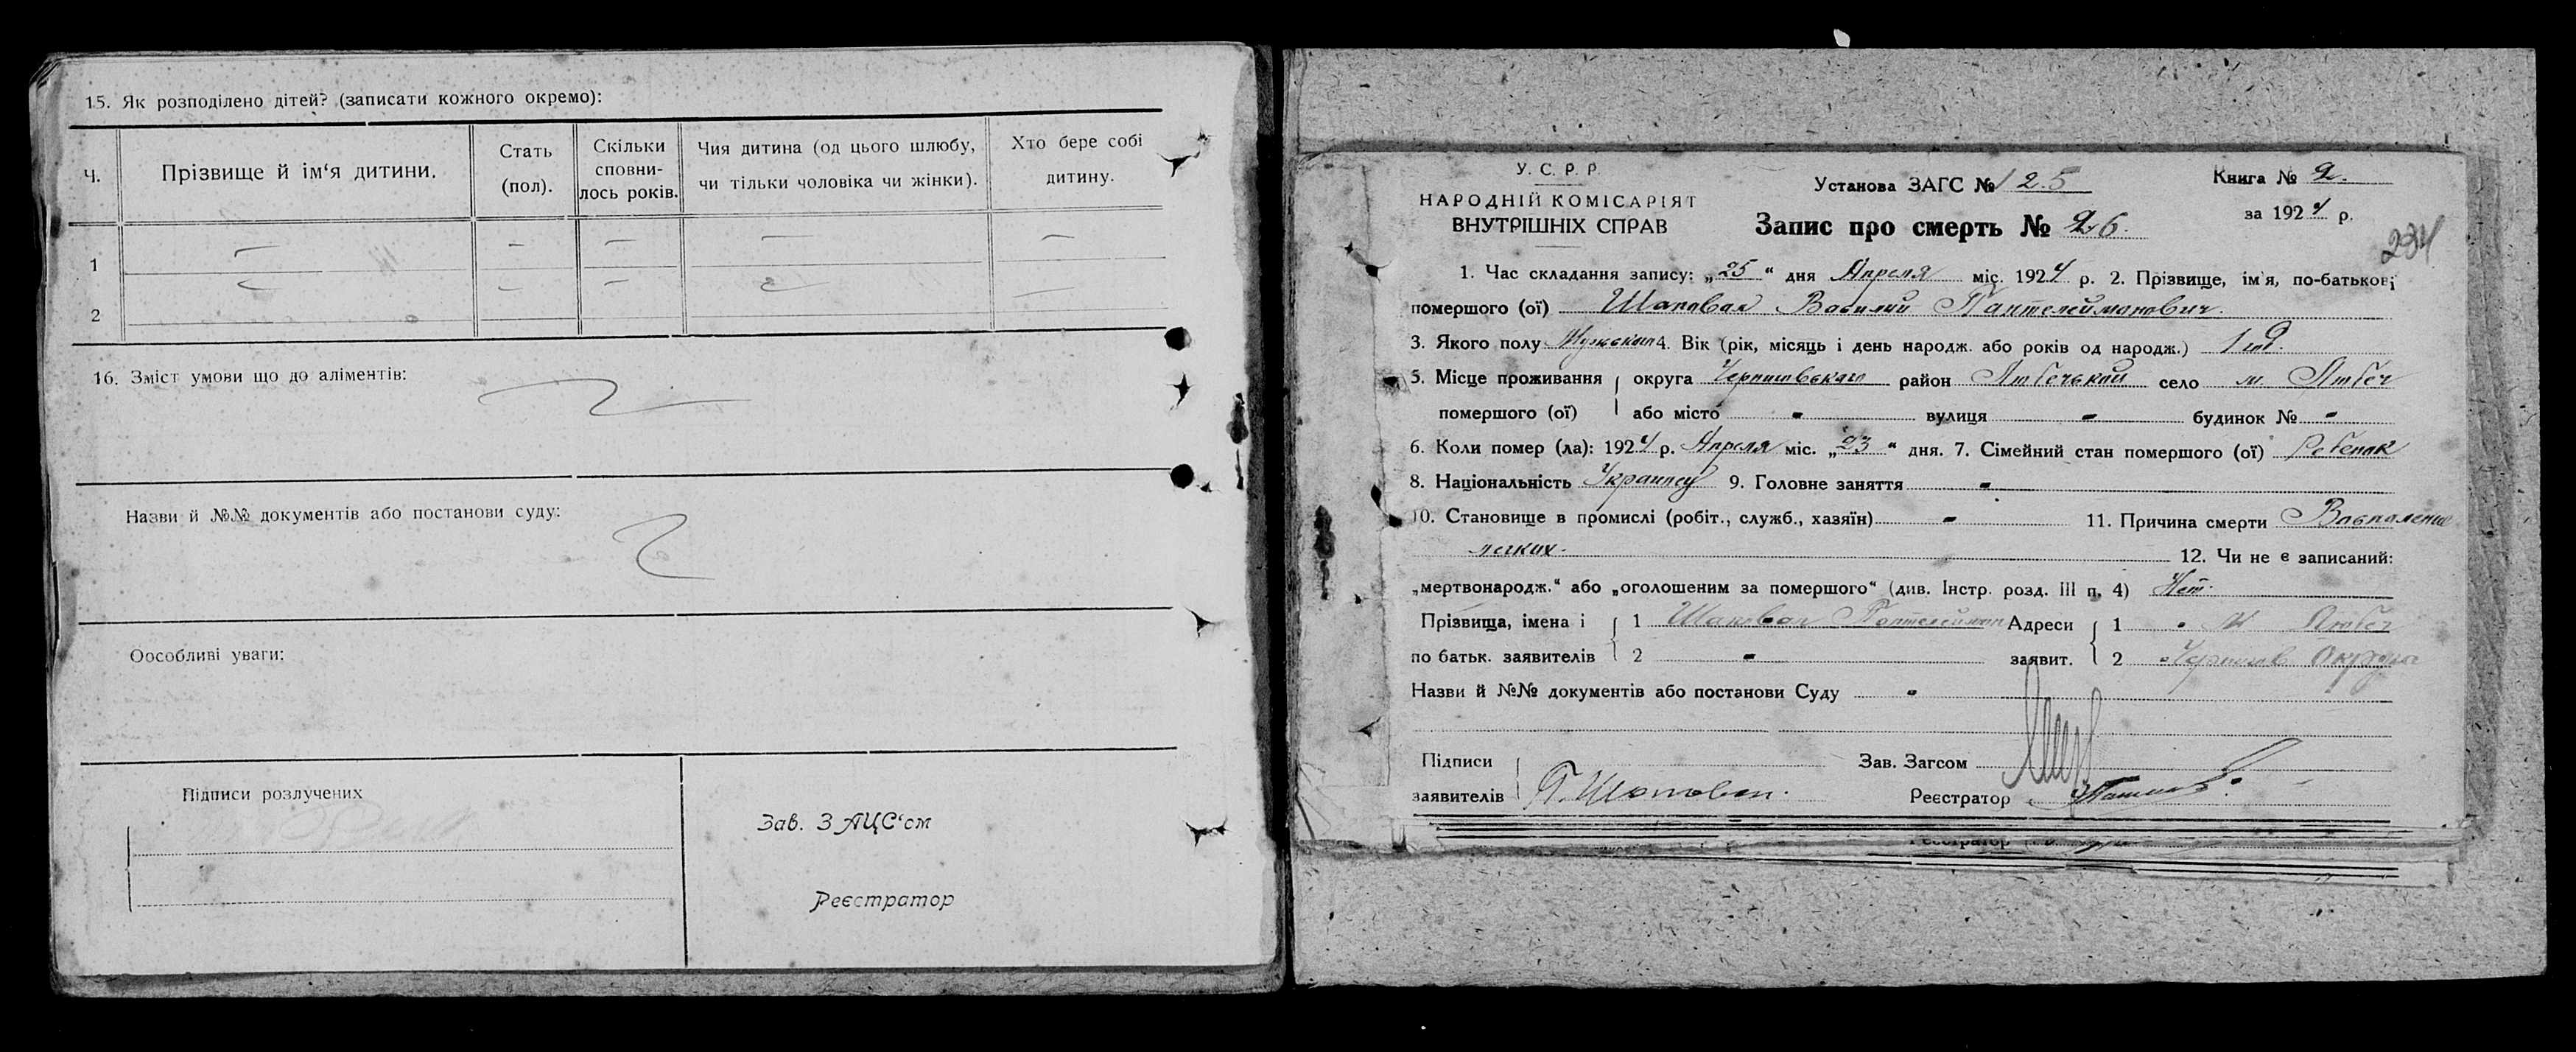 15. Як розподілено дітей? (записати кожного окремо):
Ч. Прізвище й ім‘я дитини. Стать (пол). Скільки сповни- лось років. Чия дитина (од цього шлюбу, чи тільки чоловіка чи жінки). Хто бере собі дитину.
1
2
16. Зміст умови що до аліментів:
Назви й №№ документів або постанови суду:
Оособливі уваги:
Підписи розлучених
Зав. ЗАЦС‘ом
Реєстратор
У. С. Р. Р.
НАРОДНІЙ КОМІСАРІЯТ
ВНУТРІШНІХ СПРАВ
Установа ЗАГС № 125
Запис про смерть № 26.
Книга № 2.
за 1924 р.
234
1. Час складання запису: „25“ дня Апреля міс. 1924 р. 2. Прізвище, ім‘я, по-батькові
помершого (ої) Шаповал Василий Пантелеймонович.
3. Якого полу Мужской 4. Вік (рік, місяць і день народж. або років од народж.) 1 год.
5. Місце проживання округа Черниговского район Любечьский село м. Любеч
помершого (ої) або місто - вулиця - будинок № -
6. Коли помер (ла): 1924 р. Апреля міс. „23“ дня. 7. Сімейний стан помершого (ої) Ребенок
8. Національність Украинец 9. Головне заняття -
10. Становище в промислі (робіт., служб., хазяїн) - 11. Причина смерти Воспаление
легких. 12. Чи не є записаний:
„мертвонародж.“ або „оголошеним за помершого“ (див. Інстр. розд. III п. 4) Нет.
Прізвища, імена і 1 Шаповал Пантелеймон Адреси 1 М Любеч
по батьк. заявителів 2 - заявит. 2 Чернигов Округи
Назви й №№ документів або постанови Суду -
Підписи Зав. Загсом
заявителів П. Шаповал. Реєстратор
Реєстратор